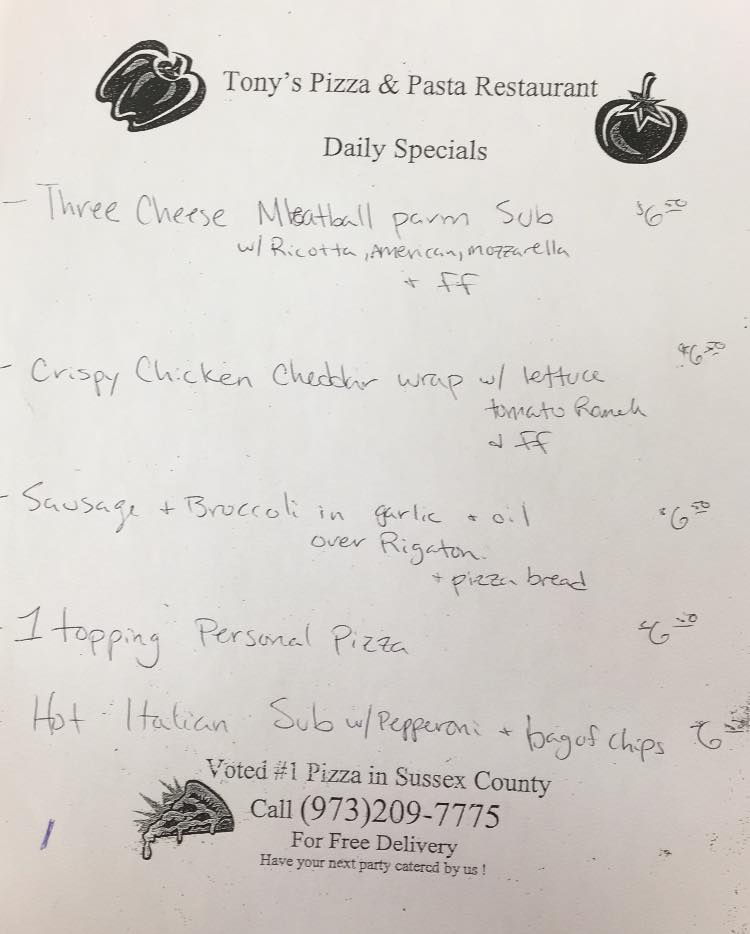 Tony's Pizza & Pasta Restaurant
Daily Specials
- Three Cheese Meatball parm Sub $6.50
w/ Ricotta, American, mozzarella
+ ff
- Crispy Chicken Cheddar wrap w/ lettuce $6.50
tomato Ranch
+ ff
- Sausage + Broccoli in garlic + oil $6.50
over Rigaton.
+ pizza bread
- 1 topping Personal Pizza
Hot Italian Sub w/ Pepperoni + bag of chips
Voted #1 Pizza in Sussex County
Call (973)209-7775
For Free Delivery
Have your next party catered by us !